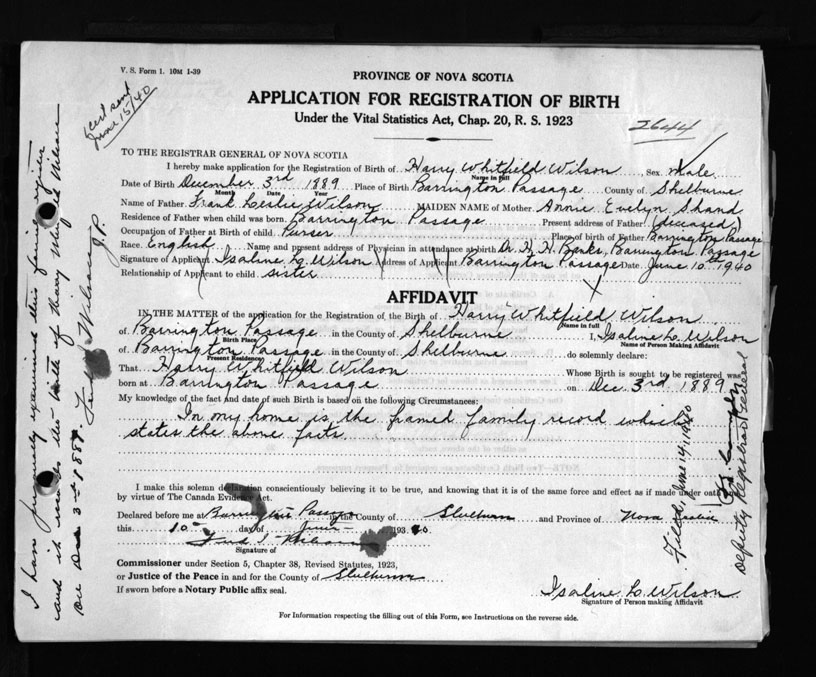 V. S. Form 1. 10M 1-39
cert sent
June 15/40
PROVINCE OF NOVA SCOTIA
APPLICATION FOR REGISTRATION OF BIRTH
Under the Vital Statistics Act, Chap. 20, R. S. 1923
2644
TO THE REGISTRAR GENERAL OF NOVA SCOTIA
I hereby make application for the Registration of Birth of Harry Whitfield Wilson, Sex male
Name in full
Date of Birth December 3rd 1889 Place of Birth Barrington Passage County of Shelburne
Month Date, Year
Name of Father Frank Leslie Wilson MAIDEN NAME of Mother Annie Evelyn Shand
Residence of Father when child was born Barrington Passage Present address of Father (deceased)
Occupation of Father at Birth of child Purser Place of birth of Father Barrington Passage
Race English Name and present address of Physician in attendance at birth Dr. H. H. Banks, Barrington Passage
Signature of Applicant Isaline L. Wilson Address of Applicant Barrington Passage Date June 10th 1940
Relationship of Applicant to child sister
AFFIDAVIT
IN THE MATTER of the application for the Registration of the Birth of Harry Whitfield Wilson
Name in full
of Barrington Passage in the County of Shelburne I, Isaline L. Wilson
Birth Place Name of Person Making Affidavit
of Barrington Passage in the County of Shelburne do solemnly declare:
Present Residence
That Harry Whitfield Wilson Whose Birth is sought to be registered was
born at Barrington Passage on Dec. 3rd 1889
My knowledge of the fact and date of such Birth is based on the following Circumstances:
In my home is the framed family record which
states the above facts
I make this solemn declaration conscientiously believing it to be true, and knowing that it is of the same force and effect as if made under oath and
by virtue of The Canada Evidence Act.
Declared before me at Barrington Passage in the County of Shelburne and Province of Nova Scotia
this 10 day of June 1940
Signature of
Commissioner under Section 5, Chapter 38, Revised Statutes, 1923,
or Justice of the Peace in and for the County of Shelburne
If sworn before a Notary Public affix seal.
Isaline L. Wilson
Signature of Person making Affidavit
For Information respecting the filling out of this Form, see Instructions on the reverse side.
I have personally examined this family register
and it records the birth of Harry Whitfield Wilson
on Dec 3rd 1889
Wilson J.P.
Filed June 14, 1940
Deputy Registrar General